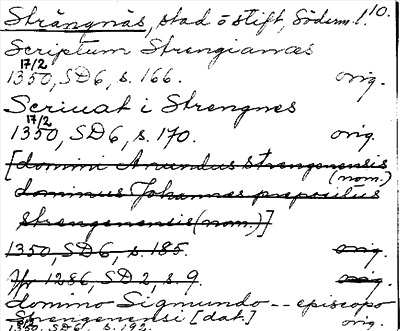 Strängnäs, stad o stift, Söderm. l. 10.
Scriptum Strengianæs
17/2
1350, SD6, s. 166. orig.
Scriuat i Strengnes
17/2
1350, SD6, s. 170. orig.
[domini Arundus strengenensis
(nom.)
dominus Johannes prepositus
strengenensis (nom.)]
1350, SD6, s. 185. orig.
Jfr 1286, SD2, s. 9. orig.
domino Sigmundo -- episcopo
Strengenensi [dat.]
1350, SD6, s. 192. orig.